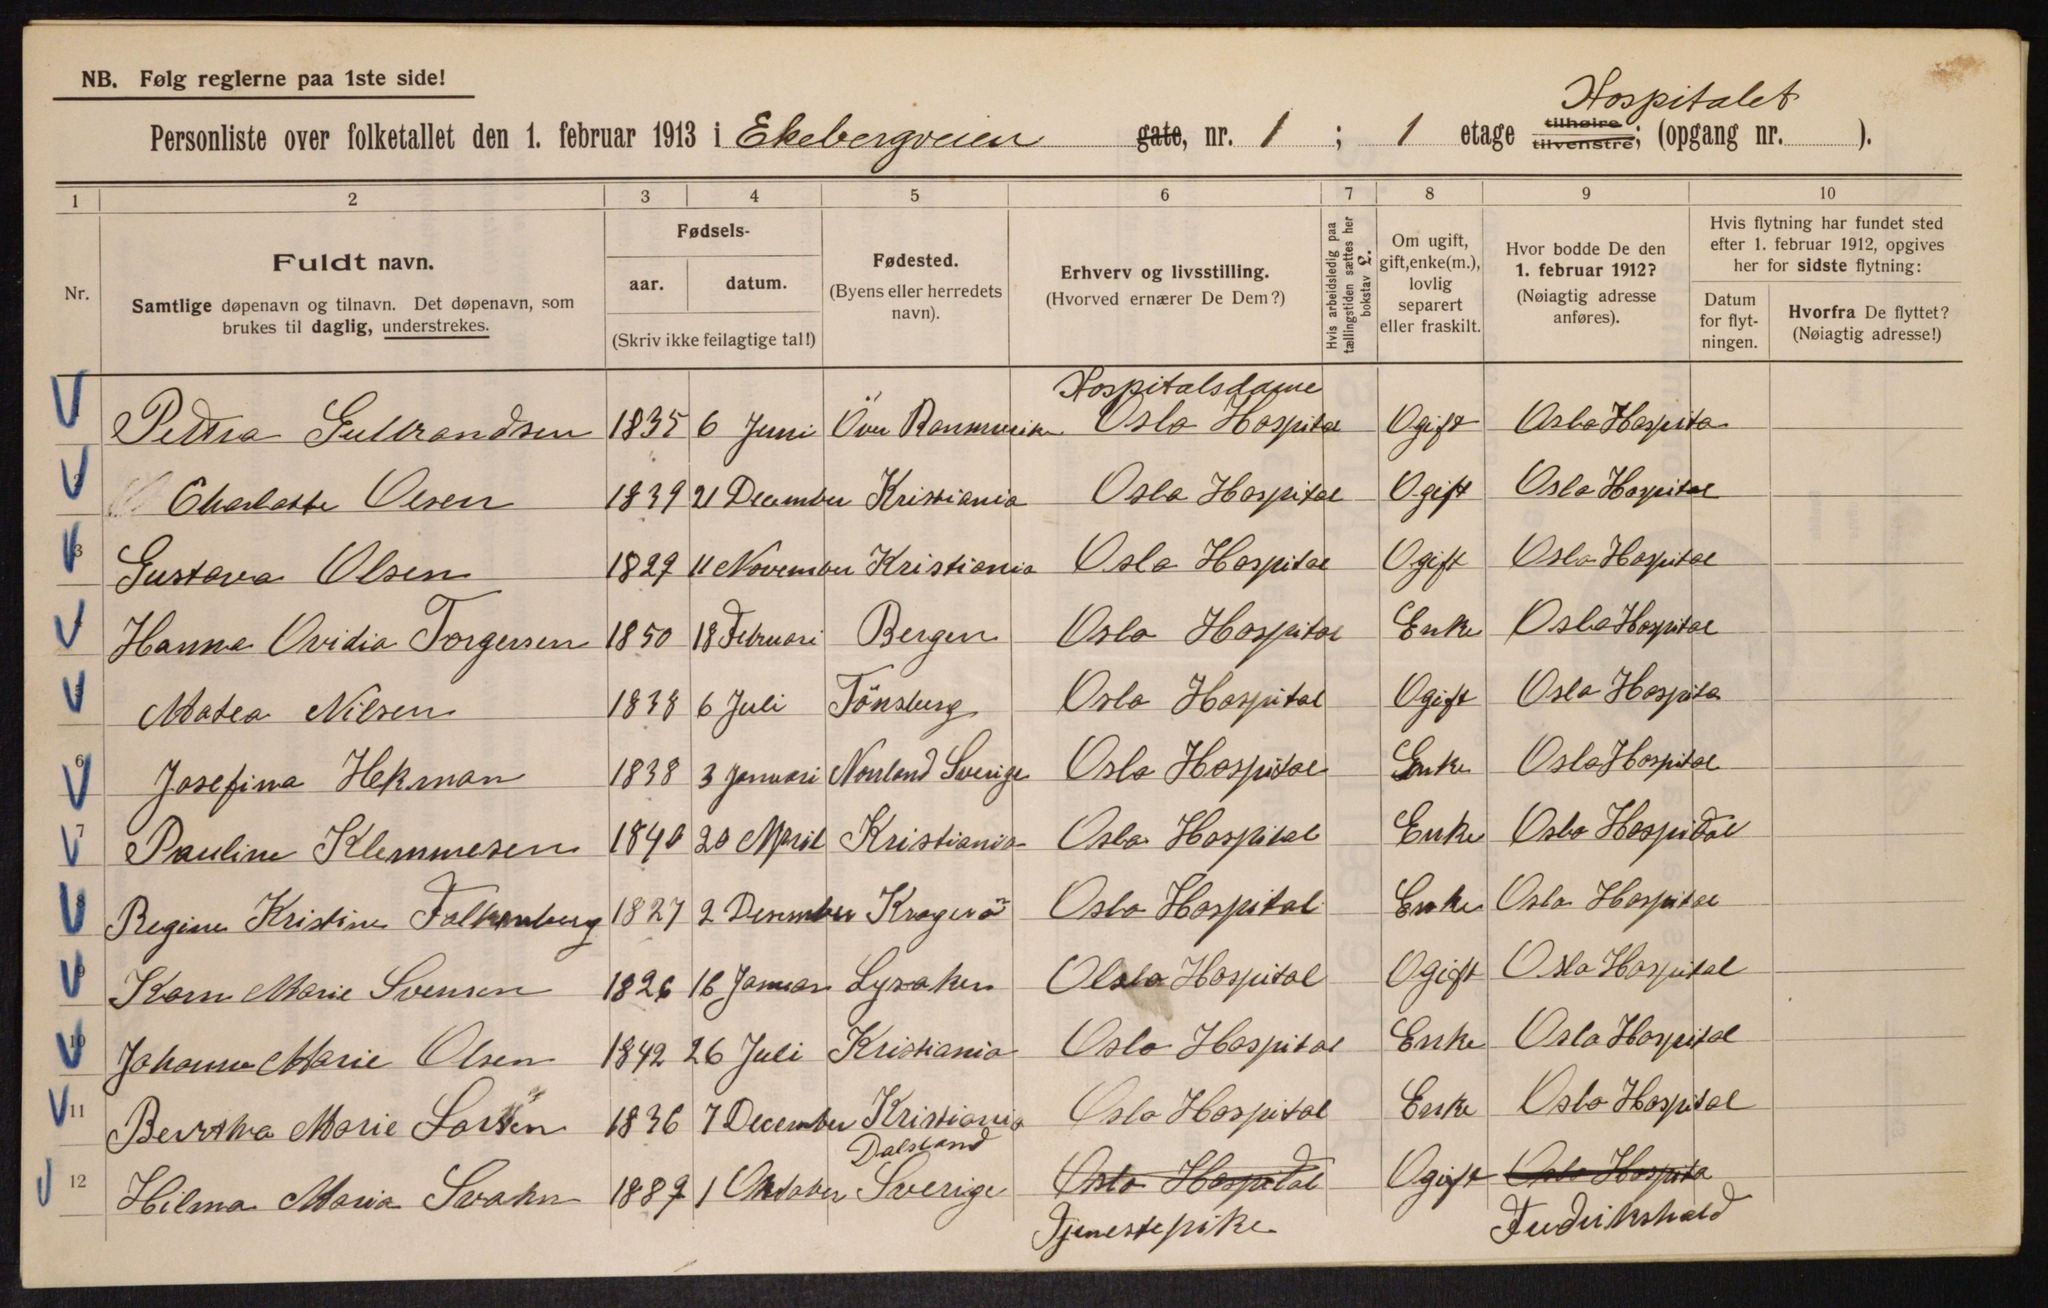 NB. Følg reglerne paa 1ste side!
Hospitalet
Personliste over folketallet den 1. februar 1913 i Ekebergveien gate, nr. 1 ; 1 etage tilhøire tilvenstre; (opgang nr. ).
1 2 3 4 5 6 7 8 9 10
Nr.
Fuldt navn.
Samtlige døpenavn og tilnavn. Det døpenavn, som
brukes til daglig, understrekes.
Fødsels-
aar. datum.
(Skriv ikke feilagtige tal!)
Fødested.
(Byens eller herredets
navn).
Erhverv og livsstilling.
(Hvorved ernærer De Dem?)
Hvis arbeidsledig paa
tællingstiden sættes her
bokstav L.
Om ugift,
gift, enke(m.),
lovlig
separert
eller fraskilt.
Hvor bodde De den
1. februar 1912?
(Nøiagtig adresse
anføres).
Hvis flytning har fundet sted
efter 1. februar 1912, opgives
her for sidste flytning:
Datum
for flyt-
ningen.
Hvorfra De flyttet?
(Nøiagtig adresse!)
Hospitalsdame
Petra Gulbrandsen 1835 6 Juni Över Oslo Hospital Ogift Oslo Hospita
Charlotte Olsen 1839 21 December Kristiania Oslo Hospital Ogift Oslo Hospital
3 Gustava Olsen 1829 11 November Kristiania Oslo Hospital Ogift Oslo Hospital
Hanna Ovidia Torgersen 1850 18 Februari Bergen Oslo Hospital Enke Oslo Hospital
5 Matea Nilsen 1838 6 Juli Tönsberg Oslo Hospital Ogift Oslo Hospita
6 Josefina Hekman 1838 3 Januari Norland Sverige Oslo Hospital Enke Oslo Hospital
7 Pauline Klemmesen 1840 20 April Kristiania Oslo Hospital Enke Oslo Hospital
8 Regine Kristine Falkenberg 1827 2 Desember Kragerö Oslo Hospital Enke Oslo Hospital
9 Karn Marie Svensen 1826 16 Januar Lysaker Oslo Hospital Ogift Oslo Hospital
10 Johanne Marie Olsen 1842 26 Juli Kristiania Oslo Hospital Enke Oslo Hospital
11 Bertha Marie 1836 7 December Kristiania Oslo Hospital Enke Oslo Hospital
Dalsland
12 Hilma Maria Svahn 1889 1 Oktober Sverige Oslo Hospital Ogift Oslo Hospita
Tjenestepike Fredrikshald